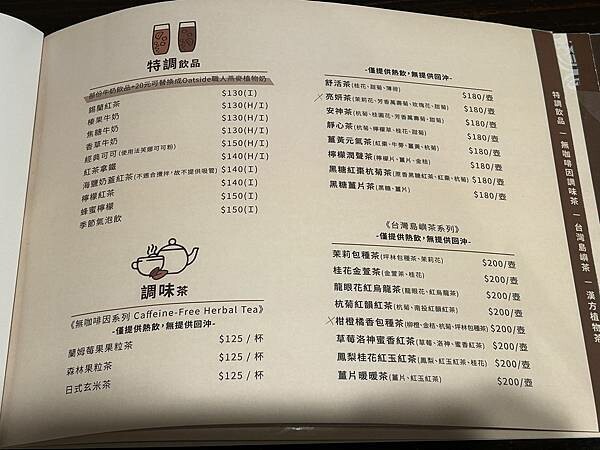 特調飲品
部份牛奶飲品+20元可替換成Oatside職人燕麥植物奶
錫蘭紅茶 $130(H/I)
榛果牛奶 $130(H/I)
焦糖牛奶 $130(H/I)
香草牛奶 $130(H/I)
經典可可(使用法芙娜可可粉) $150(H/I)
紅茶拿鐵 $140(H/I)
海鹽奶蓋紅茶(不適合攪拌,故不提供吸管) $140(I)
檸檬紅茶 $140(I)
蜂蜜檸檬 $150(I)
季節氣泡飲 $150(I)
調味茶
《無咖啡因系列 Caffeine-Free Herbal Tea》
-僅提供熱飲,無提供回沖-
蘭姆莓果果粒茶 $125 / 杯
森林果粒茶 $125 / 杯
日式玄米茶 $125 / 杯
-僅提供熱飲,無提供回沖-
舒活茶(桂花、甜菊、薄荷) $180/壺
亮妍茶(茉莉花、芳香萬壽菊、玫瑰花、甜菊) $180/壺
安神茶(杭菊、桂圓花、芳香萬壽菊、甜菊) $180/壺
靜心茶(杭菊、檸檬草、桂花、甜菊) $180/壺
薑黃元氣茶(紅棗、牛蒡、薑黃、杭菊) $180/壺
檸檬潤聲茶(檸檬片、薑片、金桔) $180/壺
黑糖紅棗杭菊茶(原香黑糖紅茶、紅棗、杭菊) $180/壺
黑糖薑片茶(黑糖、薑片) $180/壺
《台灣島嶼茶系列》
-僅提供熱飲,無提供回沖-
茉莉包種茶(坪林包種茶、茉莉花) $200/壺
桂花金萱茶(金萱茶、桂花) $200/壺
龍眼花紅烏龍茶(龍眼花、紅烏龍茶) $200/壺
杭菊紅韻紅茶(杭菊、南投紅韻紅茶) $200/壺
柑橙橘香包種茶(柳橙、金桔、杭菊、坪林包種茶) $200/壺
草莓洛神蜜香紅茶(草莓、洛神、蜜香紅茶) $200/壺
鳳梨桂花紅玉紅茶(鳳梨、紅玉紅茶、桂花) $200/壺
薑片暖暖茶(薑片、紅玉紅茶) $200/壺
特調飲品 — 無咖啡因調味茶 — 台灣島嶼茶 — 漢方植物茶